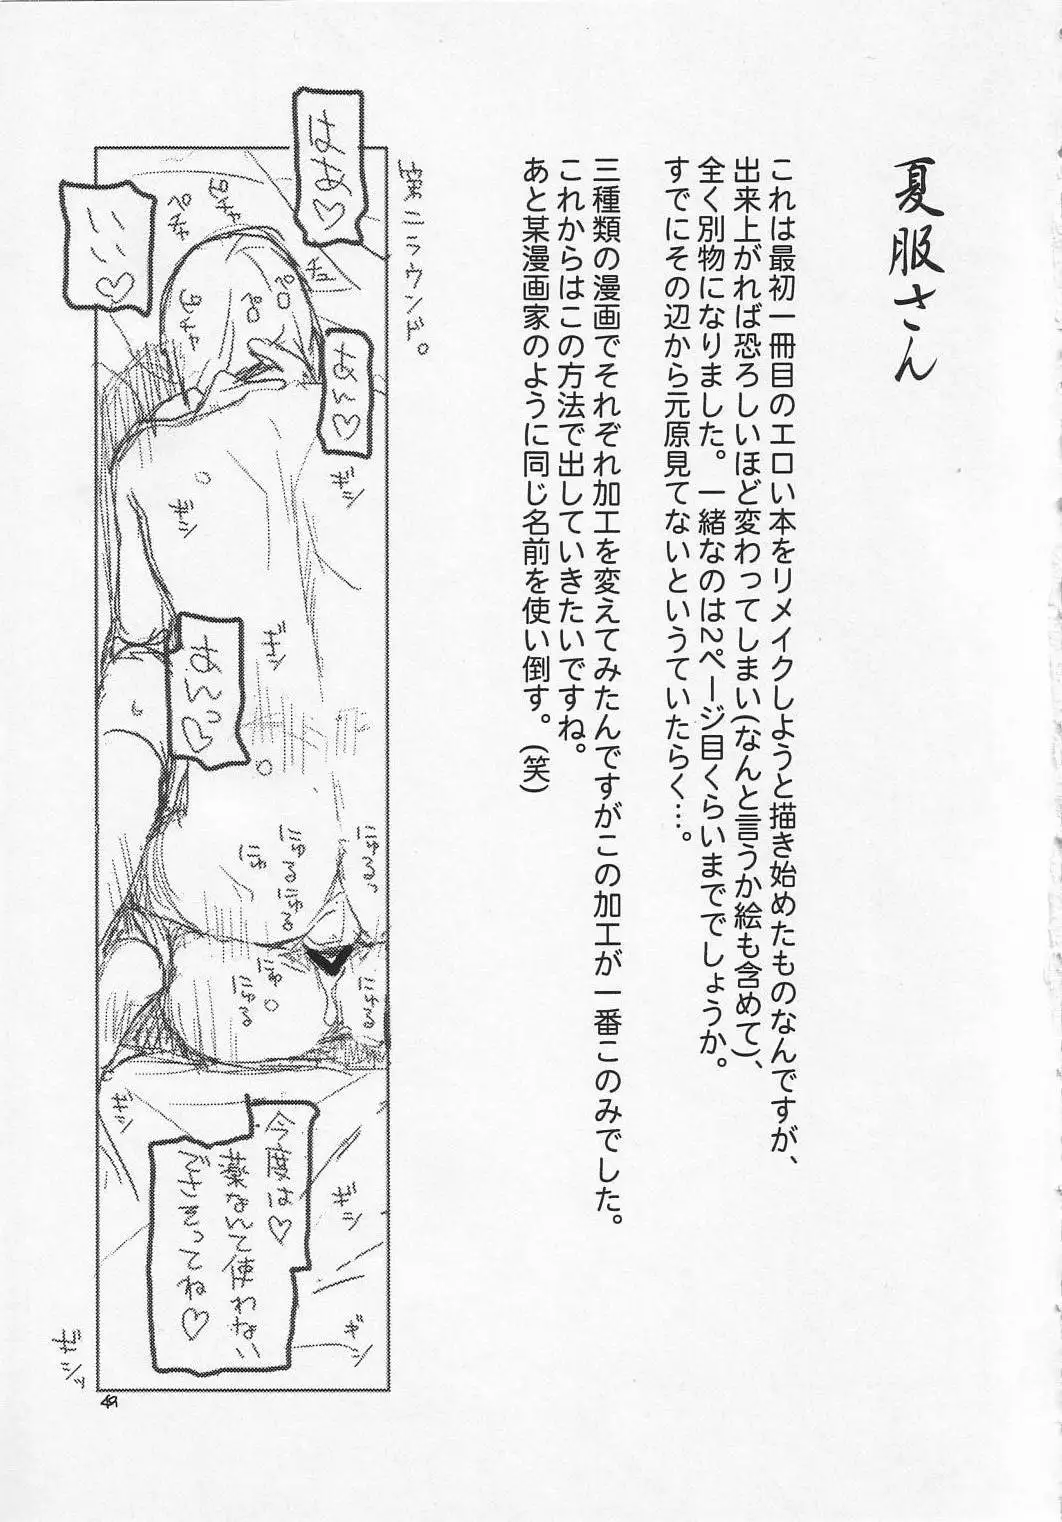 夏服さん
これは最初一冊目のエロい本をリメイクしようと描き始めたものなんですが、
出来上がれば恐ろしいほど変わってしまい(なんと言うか絵も含めて)、
全く別物になりました。一緒なのは2ページ目くらいまででしょうか。
すでにその辺から元原見てないというていたらく…。
三種類の漫画でそれぞれ加工を変えてみたんですがこの加工が一番このみでした。
これからはこの方法で出していきたいですね。
あと某漫画家のように同じ名前を使い倒す。(笑)
第二ラウンド。
はあ♡
いい♡
ピチャ
ペチャ
チュ
ペロ
ペロ
あん♡
ギシ
ギシ
ギシ
あんっ♡
にゅる
にゅる
にゅる
にゅ
にゅ
にゅる
にゅる
ギシ
ギシ
ギシ
今度は♡
薬なんて使わない
でさぁってね♡
ギシッ
49